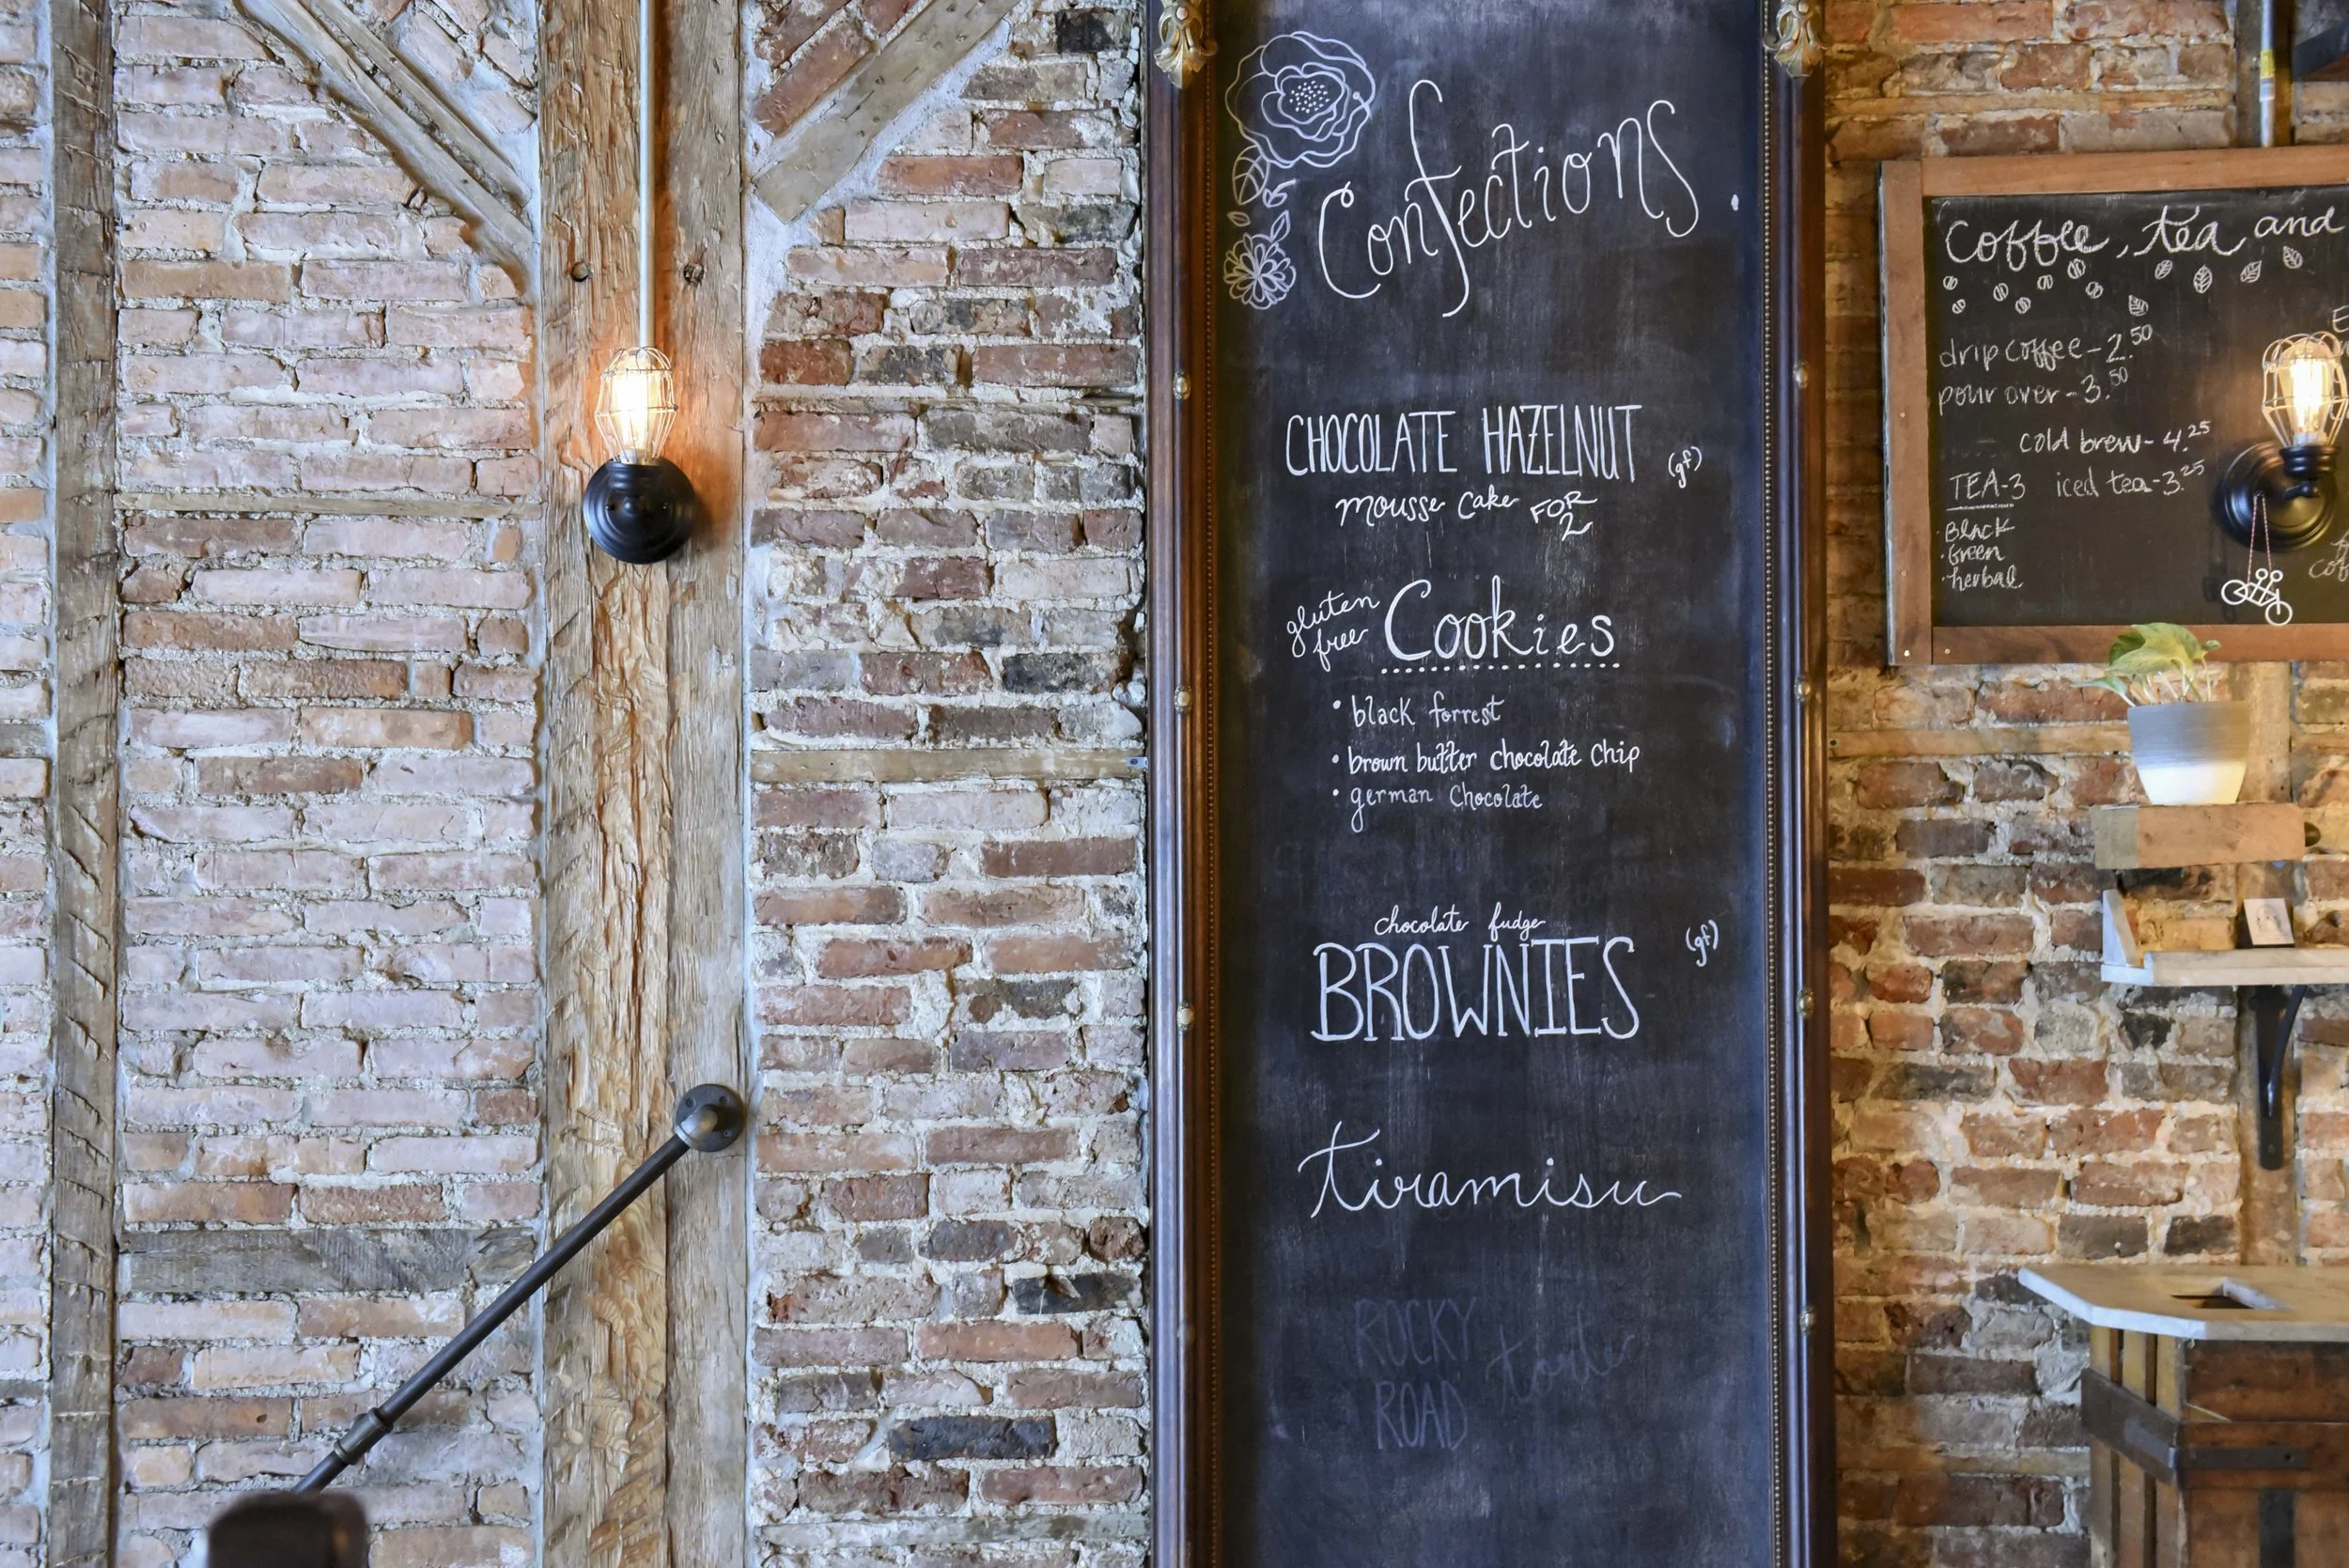 Confections
CHOCOLATE HAZELNUT (gf)
mousse cake FOR 2
gluten free Cookies
• black forrest
• brown butter chocolate chip
• german chocolate
chocolate fudge
BROWNIES (gf)
tiramisu
ROCKY ROAD torte
Coffee, tea and
drip coffee - 2.50
pour over - 3.50
cold brew - 4.25
TEA-3 iced tea - 3.25
• Black
• Green
• herbal